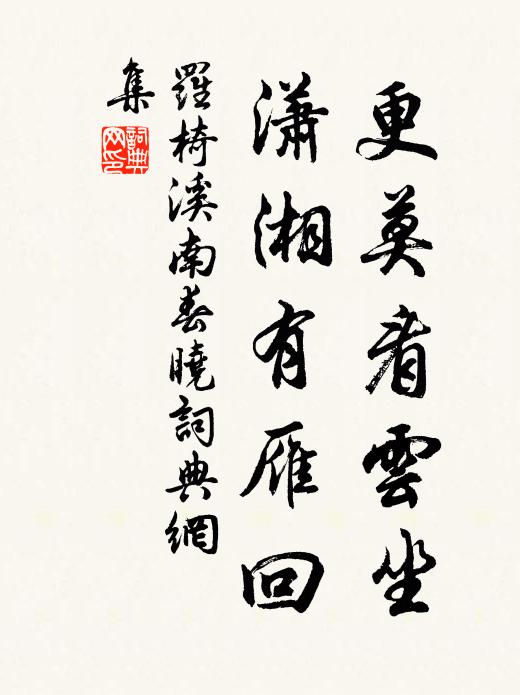 更莫看雲坐
瀟湘有雁回
羅椅溪南春曉詞典網
集
詞典
网印